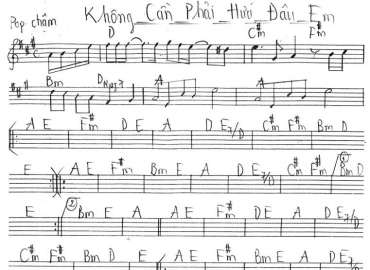 Pop chậm Không_Cần_Phải_Hứa_Đâu_Em
D C#m F#m
Bm Dmaj7 A A
A E F#m D E A D E7/D C#m F#m Bm D
E A E F#m Bm E A D E7/D C#m F#m 1. Bm D
E 2. Bm E A A E F#m D E A D E7/D
C#m F#m Bm D E A E F#m Bm E A